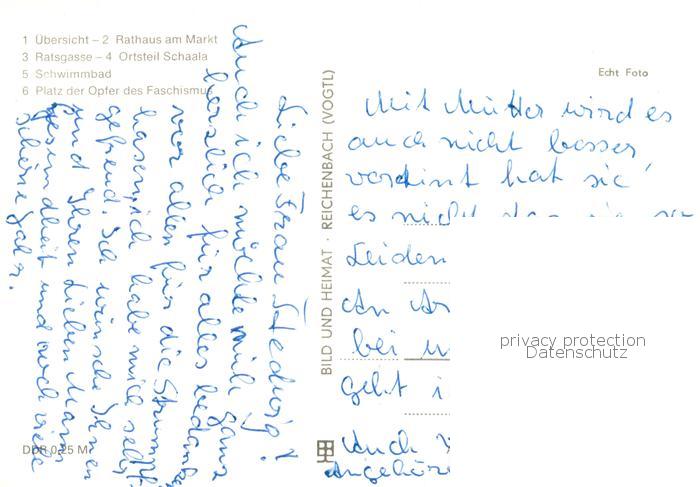 1 Übersicht – 2 Rathaus am Markt
3 Ratsgasse – 4 Ortsteil Schaala
5 Schwimmbad
6 Platz der Opfer des Faschismus
DDR 0,25 M
BILD UND HEIMAT · REICHENBACH (VOGTL)
Echt Foto
Liebe Frau Hedwig!
Auch ich möchte mich ganz
herzlich für alles bedanken
vor allen für die Strumpf
hosen, ich habe mich sehr
gefreud. Ich wünsche Ihnen
und Ihren lieben Mann
gesundheit und noch viele
schöne Jahr.
Mit Mutter wird es
auch nicht besser
verdint hat sie
es nicht
Leiden
An
bei
geht
Auch
Angehöre
privacy protection
Datenschutz